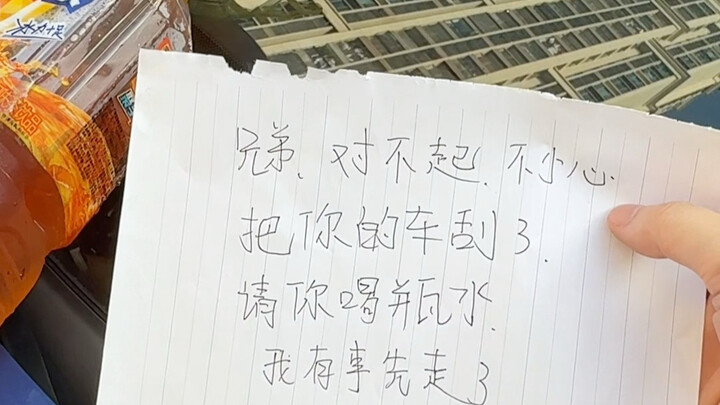 兄弟、对不起、不小心
把你的车刮了.
请你喝瓶水.
我有事先走了